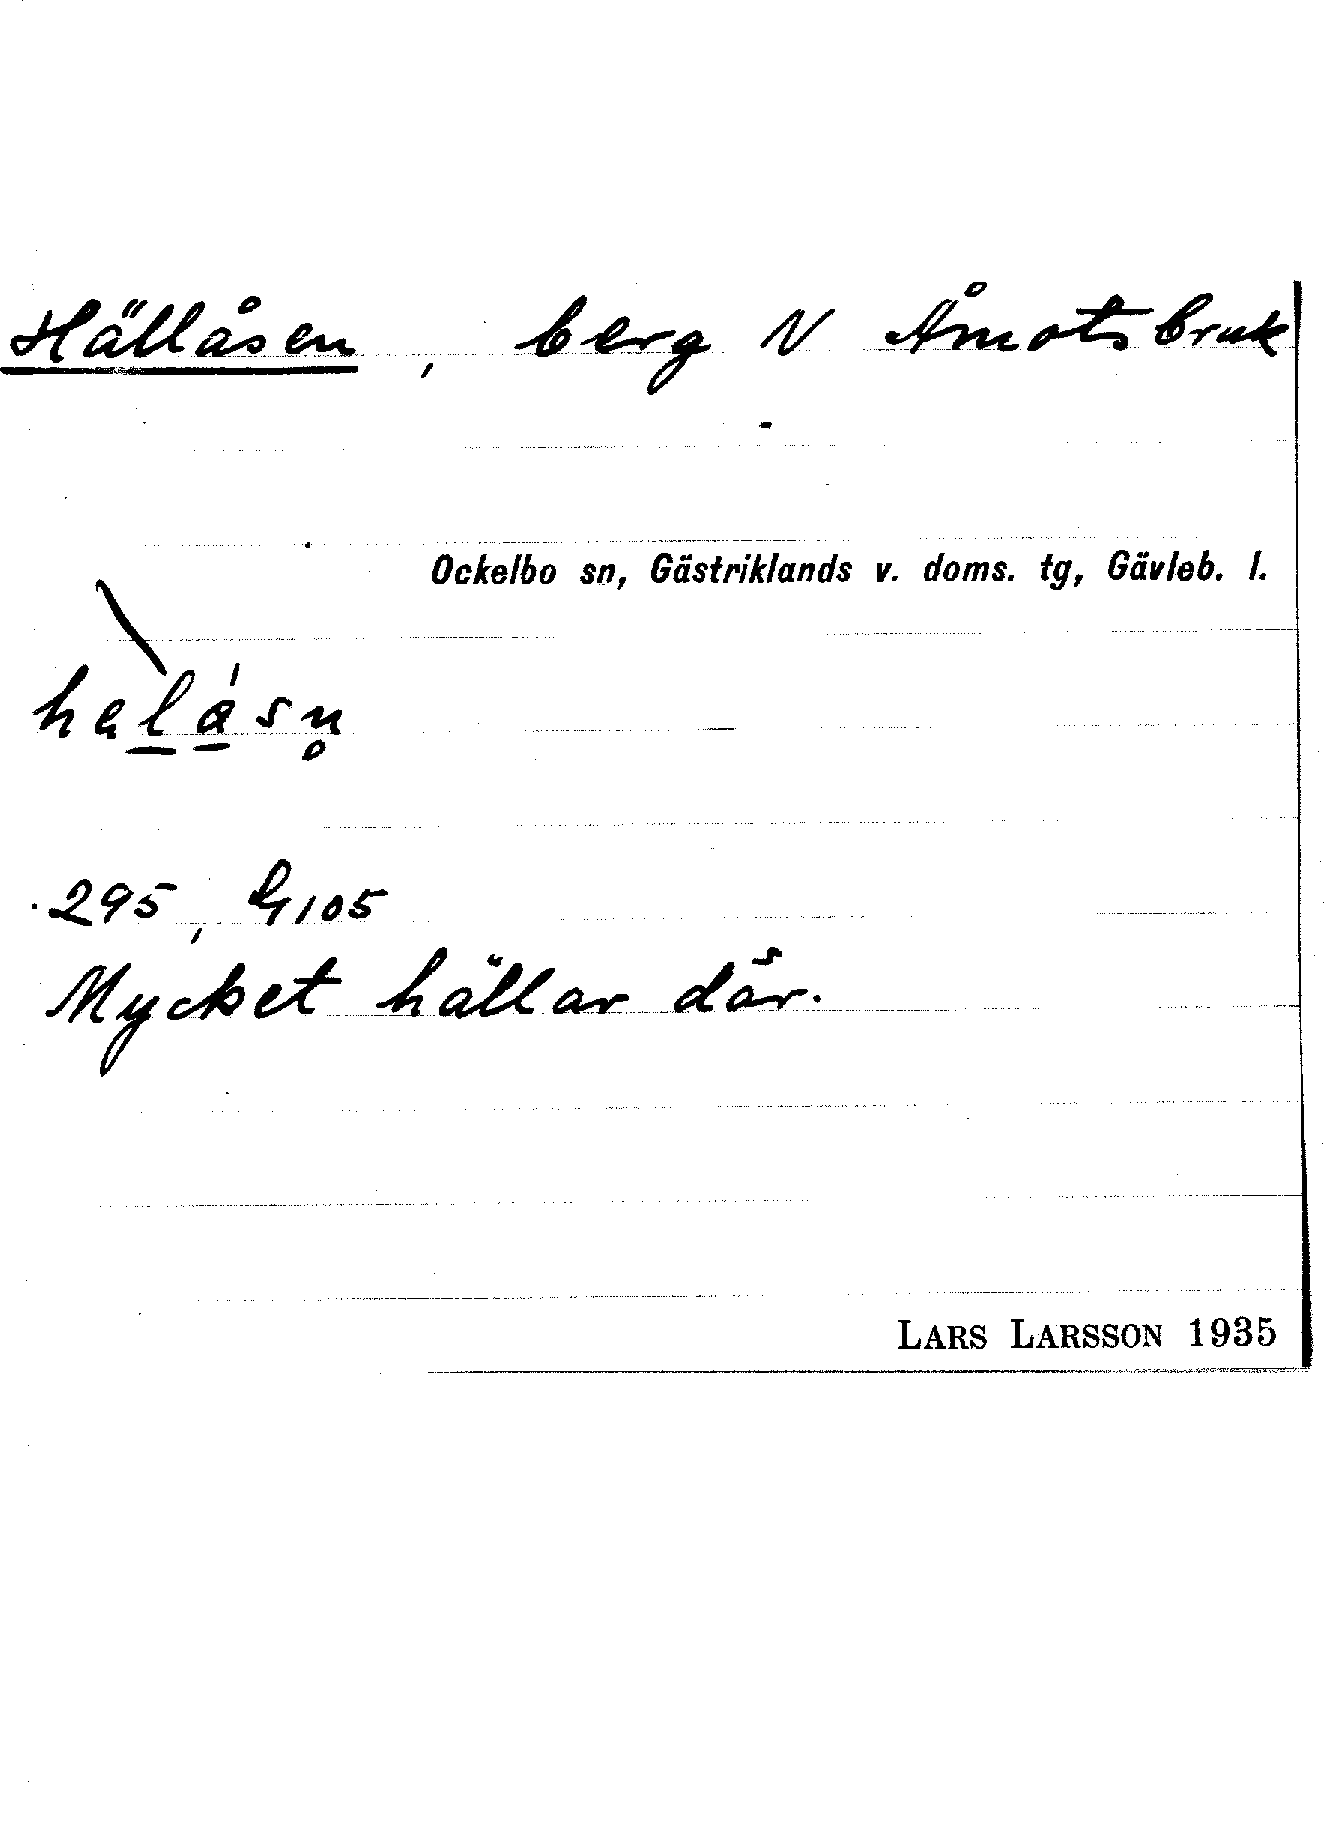 Hällåsen, berg N Åmotsbruk
Ockelbo sn, Gästriklands v. doms. tg, Gävleb. l.
295, G105
Mycket hällar där.
LARS LARSSON 1935